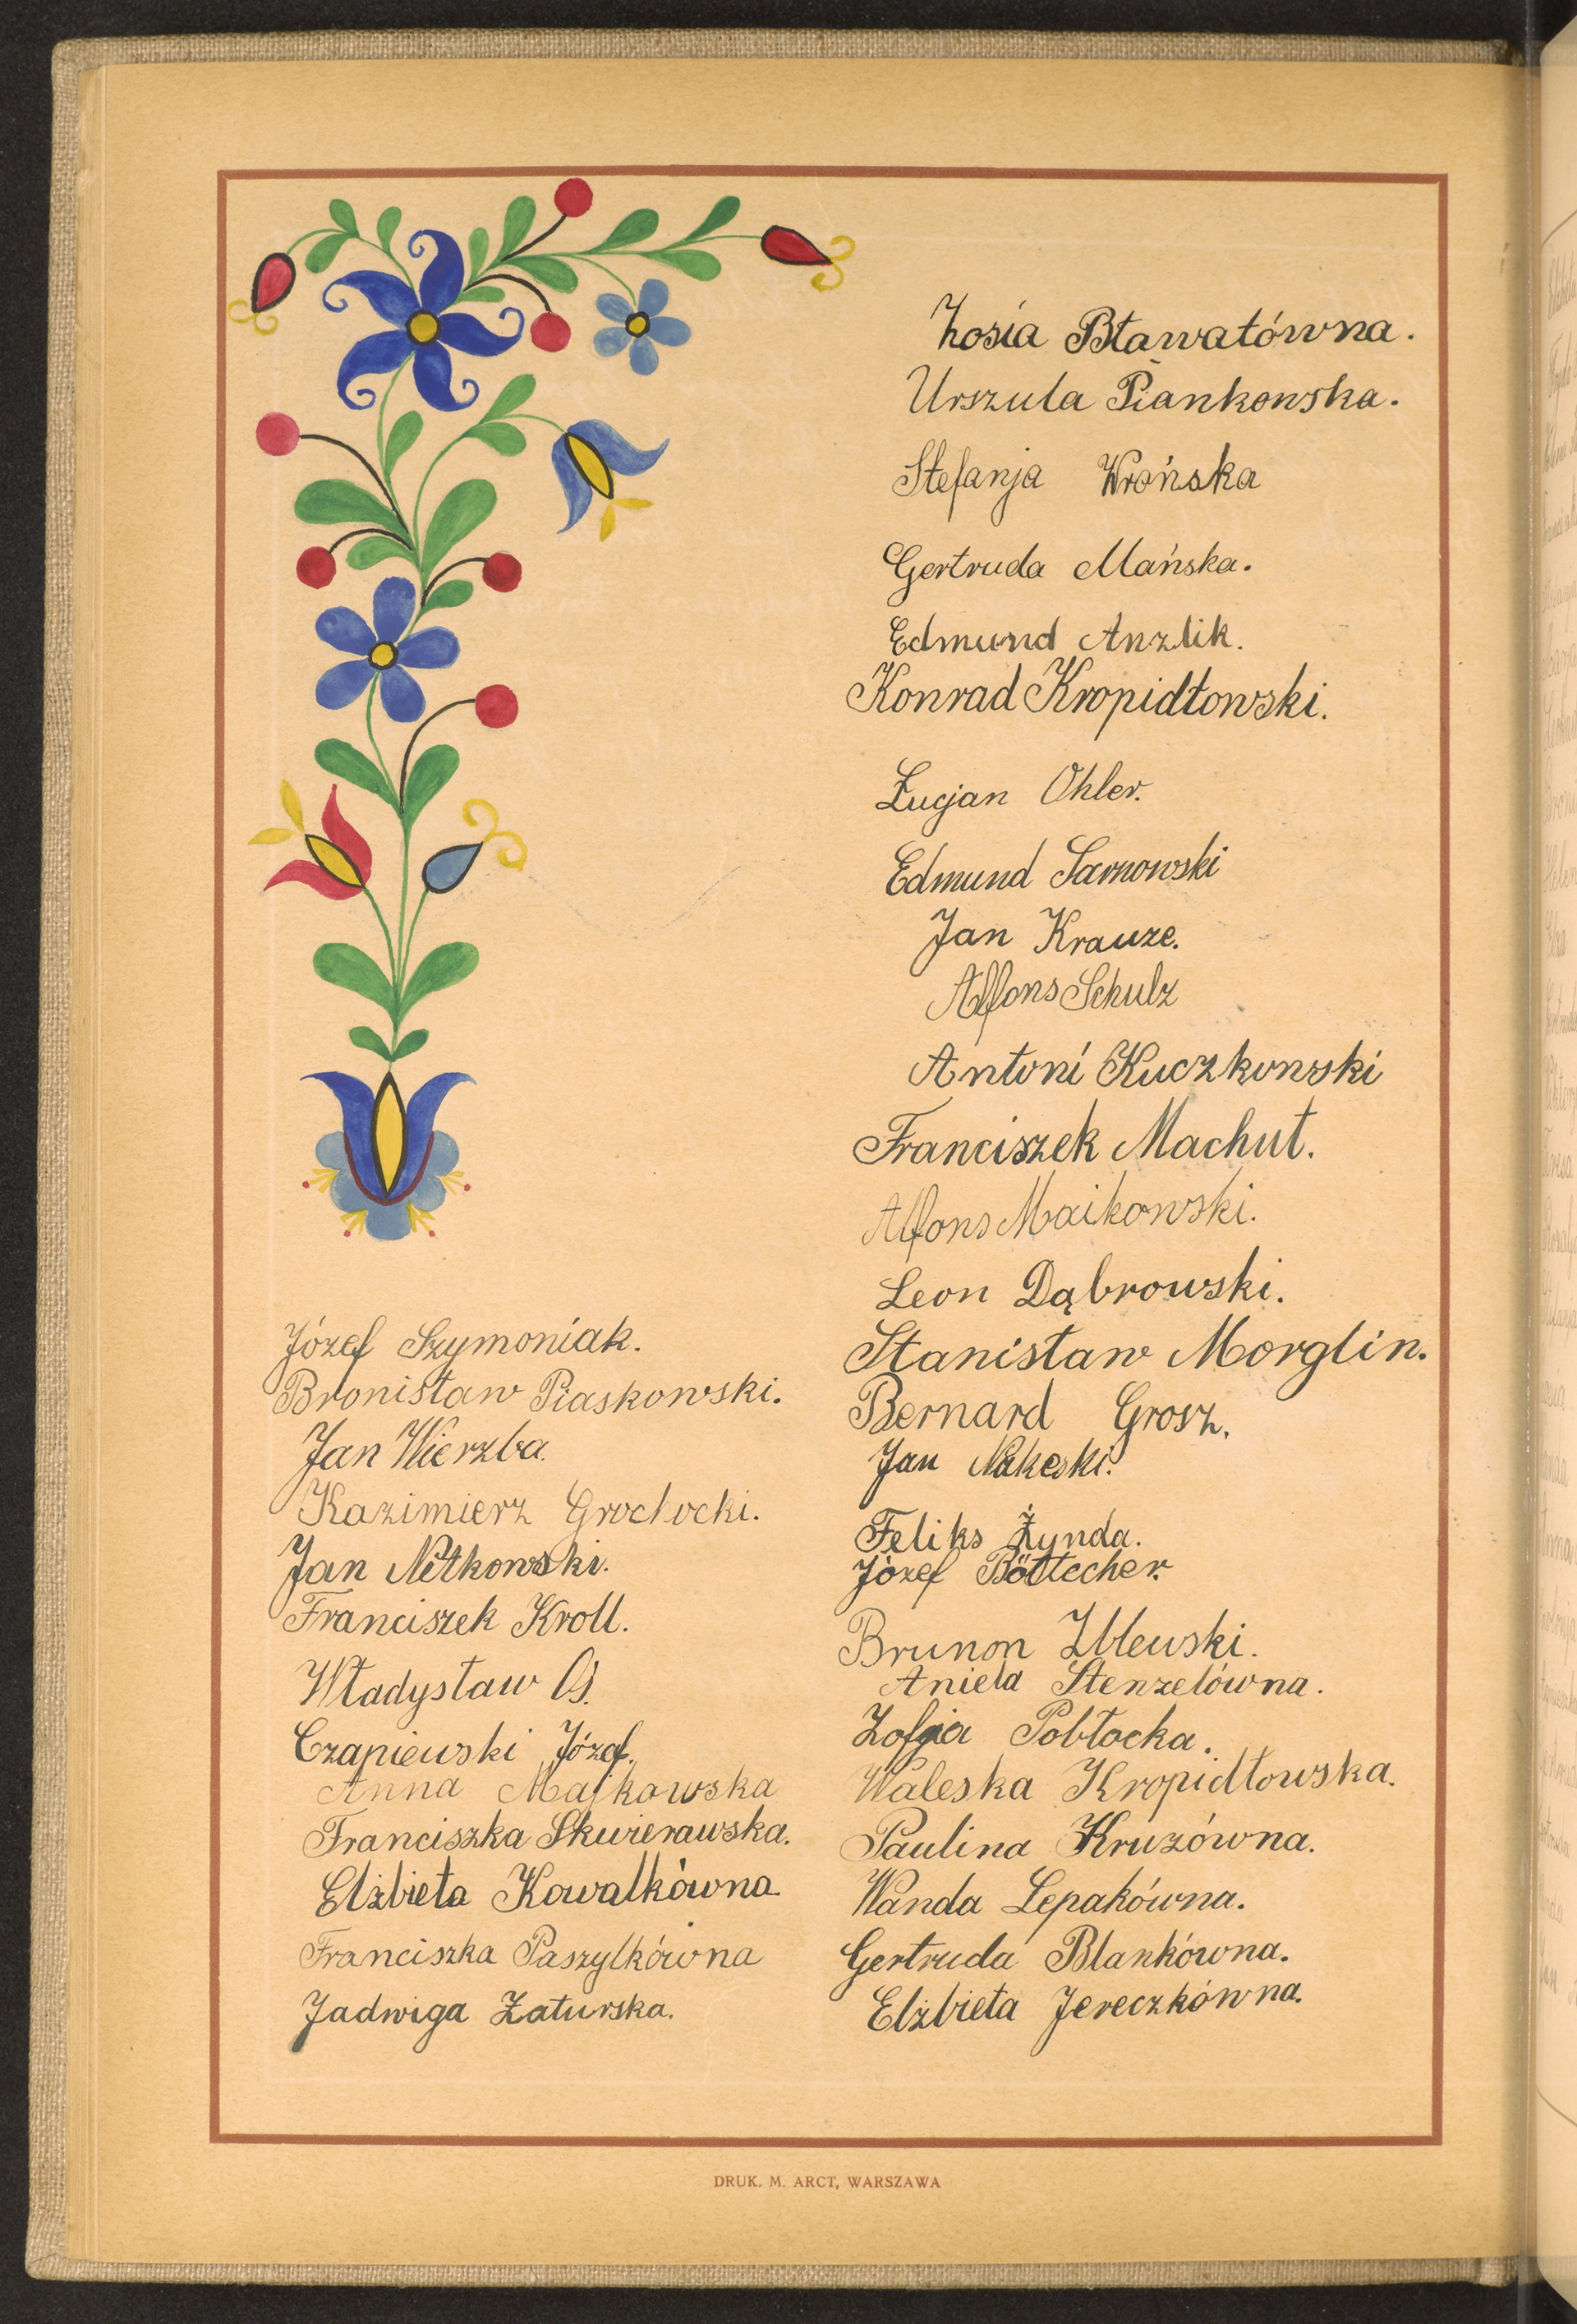 Józef Szymoniak.
Bronisław Piaskowski.
Jan Wierzba.
Kazimierz Grochocki.
Jan Netkowski.
Franciszek Kroll.
Władysław Oś.
Czapiewski Józef.
Anna Majkowska
Franciszka Skwierawska.
Elżbieta Kowalkówna
Franciszka Paszylkówna
Jadwiga Zaturska.
Zosia Bławatówna.
Urszula Piankowska.
Stefanja Wrońska
Gertruda Mańska.
Edmund Anzlik.
Konrad Kropidłowski.
Łucjan Ohler.
Edmund Sarnowski
Jan Krauze.
Alfons Schulz
Antoni Kuczkowski
Franciszek Machut.
Alfons Maikowski.
Leon Dąbrowski.
Stanisław Morglin.
Bernard Grosz.
Jan
Feliks Żynda.
Józef Böttecher.
Brunon Zblewski.
Aniela Stenzelówna.
Zofja Pobłocka.
Waleska Kropidłowska.
Paulina Kruzówna.
Wanda Lepakówna.
Gertruda Blankówna.
Elżbieta Jereczkówna.
DRUK. M. ARCT, WARSZAWA